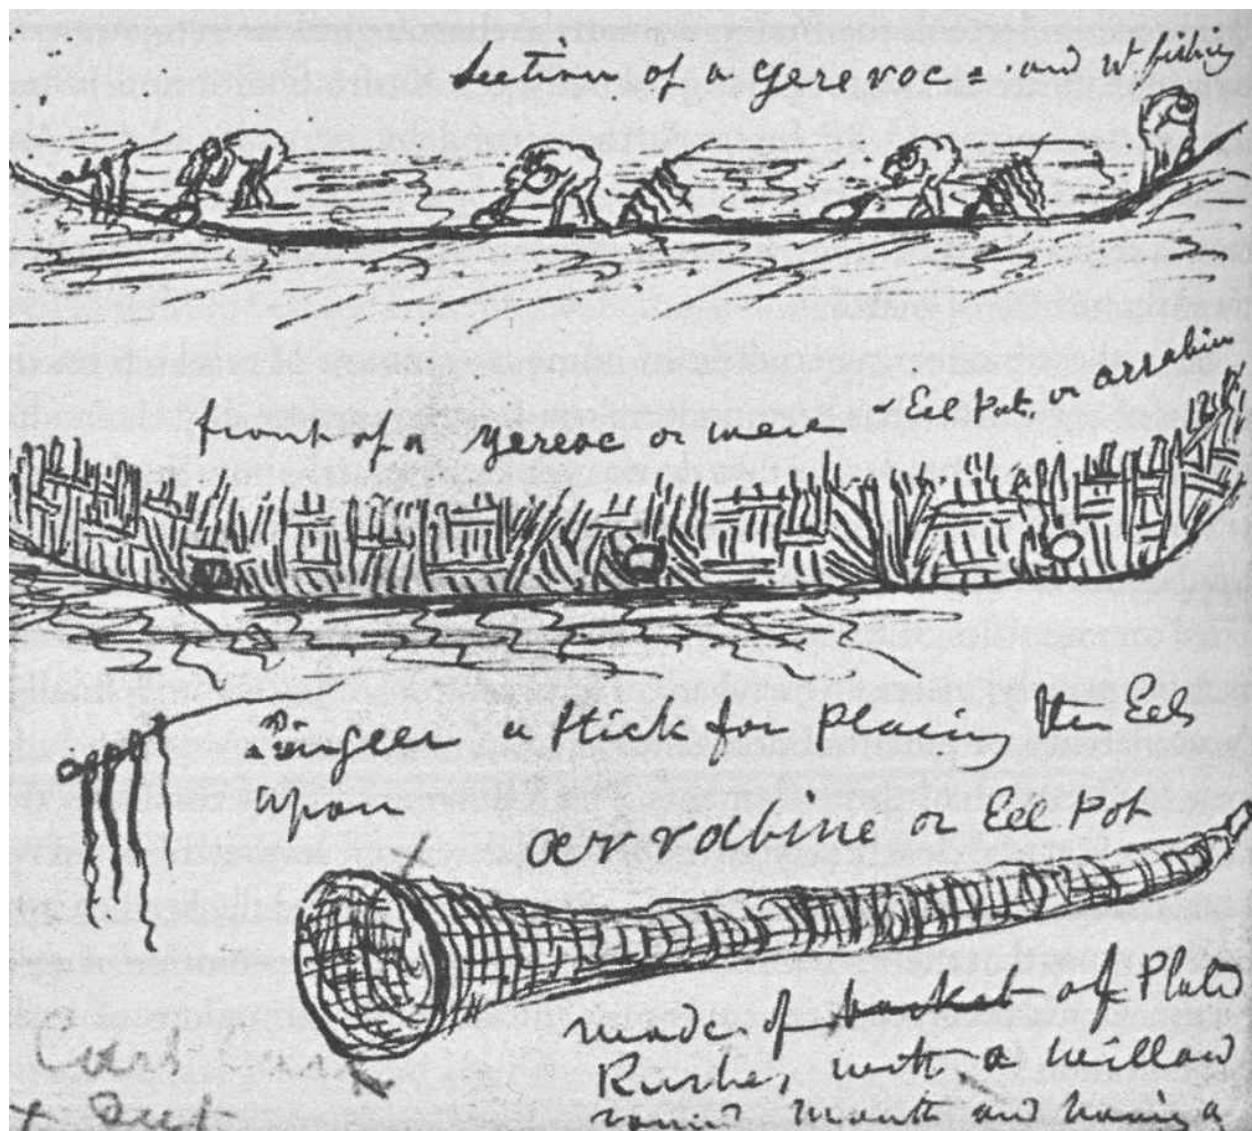 Section of a yerevoc = and wt fishing
Eel Pot, or arrabine
front of a yereoc or were
Lingeer a stick for placing the Eels
upon
arrabine or Eel Pot
made of basket of Plated
Rushes with a willow
round mouth and having a